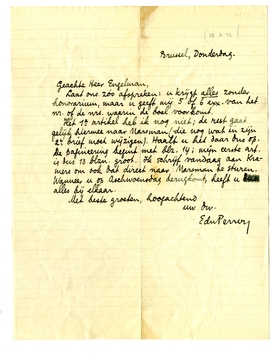 Brussel, Donderdag.
Geachte Heer Engelman,
Laat ons zoo afspreken: u krijgt alles zonder
honorarium, maar u geeft mij 5 of 6 exx. van het
nr. of de nrs. waarin de boel voorkomt.
Het 1e artikel heb ik nog niet; de rest gaat
gelijk hiermee naar Marsman (die nog wat in zijn
2e brief moet wijzigen). Haalt u het daar dus op.
De pagineering begint met blz. 14; mijn eerste art.
is dus 13 blzn. groot. Ik schrijf vandaag aan Kra-
mers om ook dat direct naar Marsman te sturen.
Wanneer u Aschwoensdag terugkomt, heeft u
alles bij elkaar.
Met beste groeten, hoogachtend
uw dw.
EduPerron